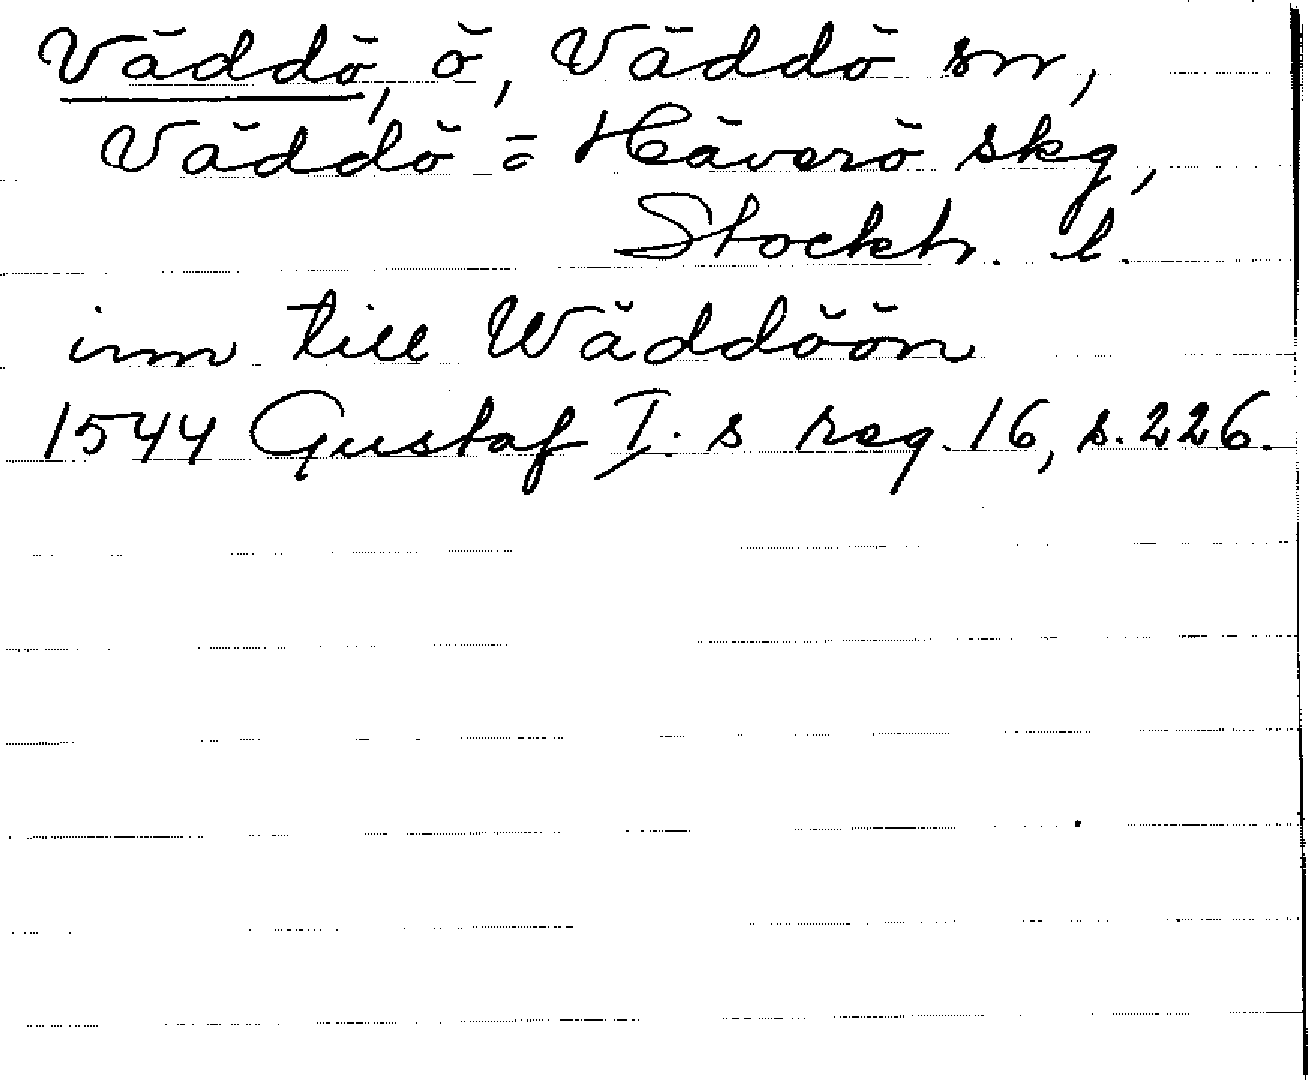 Väddö, ö, Väddö sn,
Väddö o Häverö skg,
Stockh. l.
inn till Wäddöön
1544 Gustaf I.s reg. 16, s. 226.